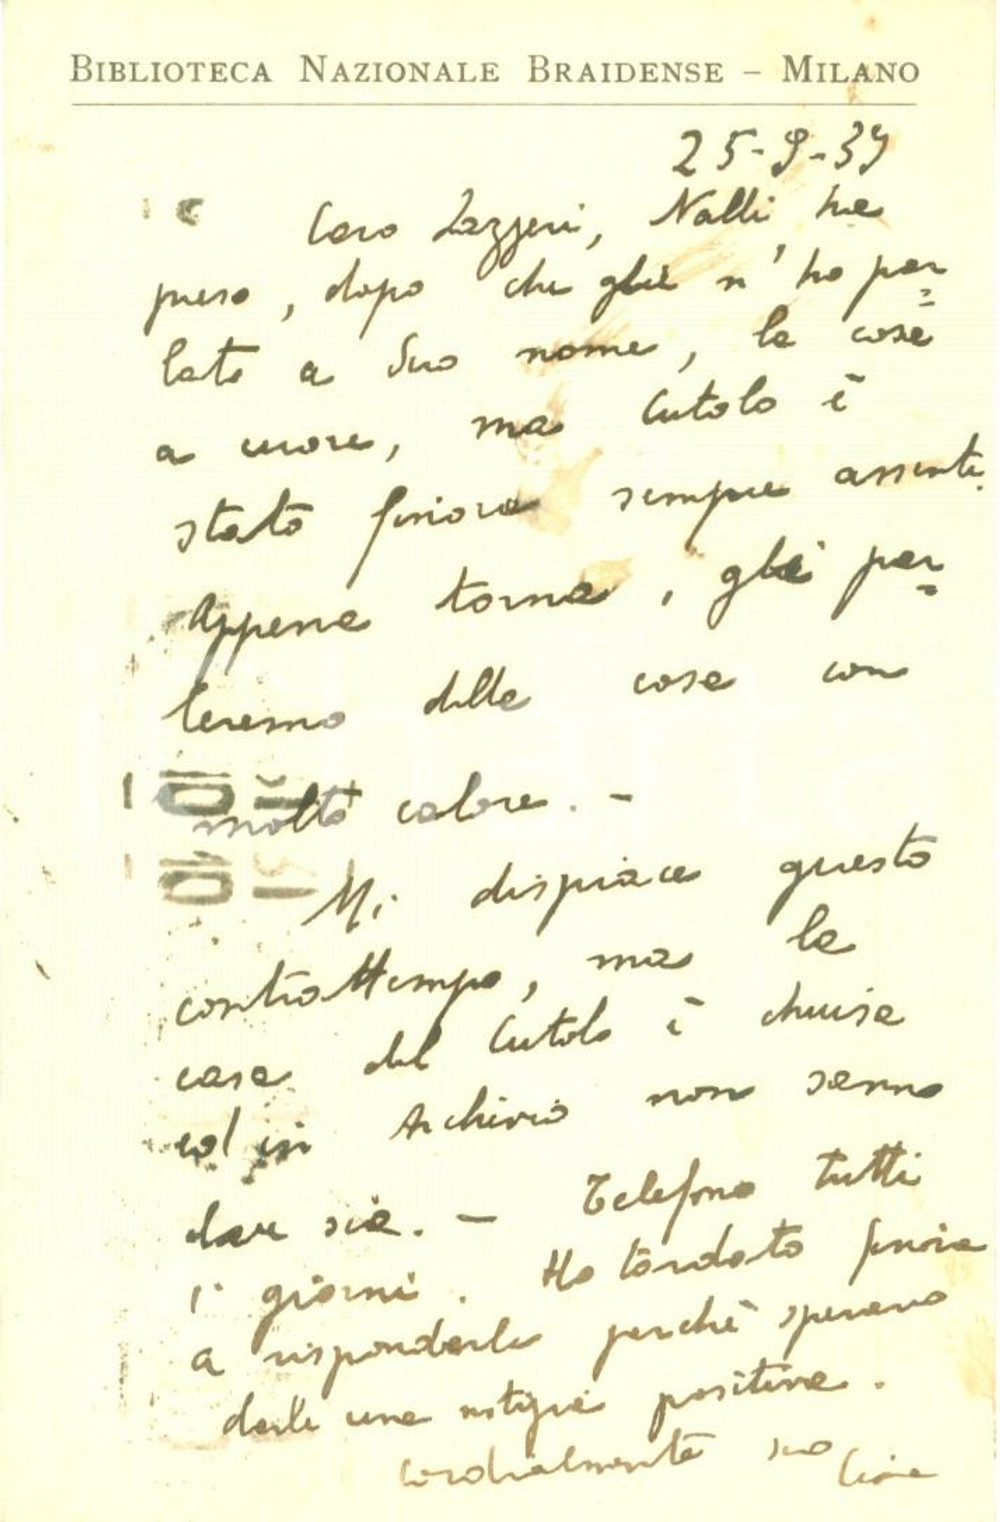 BIBLIOTECA NAZIONALE BRAIDENSE – MILANO
25-9-39
Caro Lazzeri, Nalli ha
preso, dopo che gliè n'ho par=
lato a Suo nome, la cosa
a cuore, ma Cutolo è
stato finora sempre assente.
Appena torna, gli par=
leremo delle cose con
molto calore. –
Mi dispiace questo
contrattempo, ma la
casa del Cutolo è chiusa
ed in Archivio non sanno
dove sia. – Telefono tutti
i giorni. Ho tardato finora
a risponderle perchè speravo
darle una notizia positiva.
Cordialmente suo